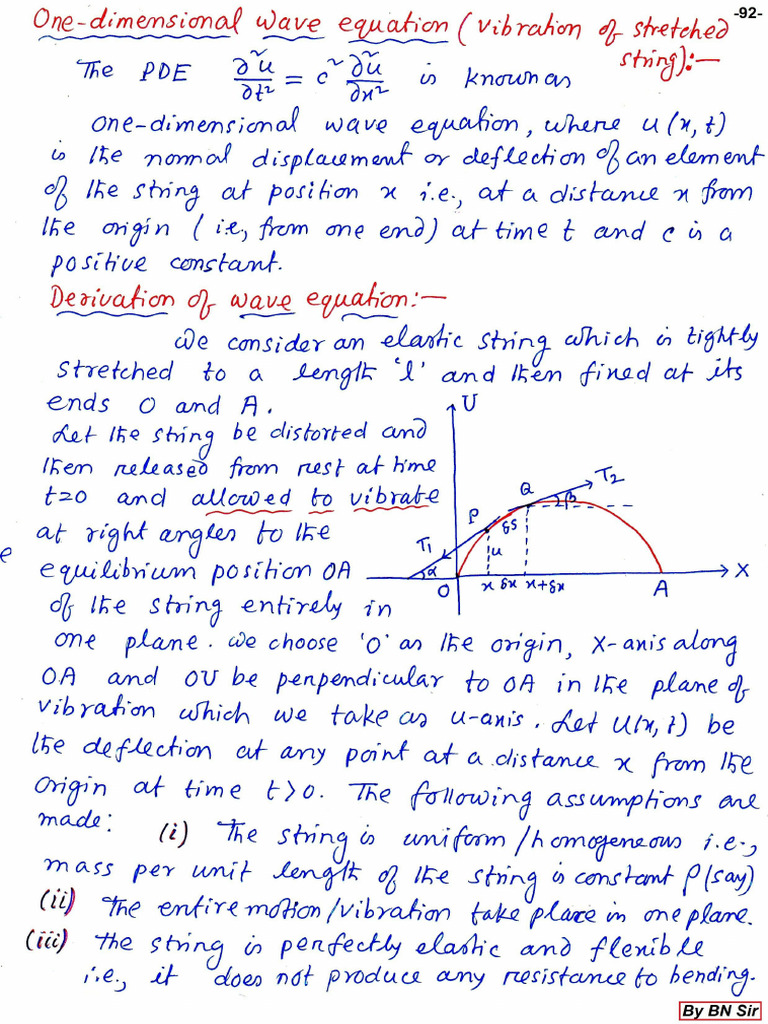 -92-
One-dimensional wave equation (vibration of stretched
string):-
The PDE ∂²u/∂t² = c² ∂²u/∂x² is known as
one-dimensional wave equation, where u(x,t)
is the normal displacement or deflection of an element
of the string at position x i.e., at a distance x from
the origin (i.e, from one end) at time t and c is a
positive constant.
Derivation of wave equation:-
We consider an elastic string which is tightly
stretched to a length 'l' and then fixed at its
ends O and A.
Let the string be distorted and
then released from rest at time
t=0 and allowed to vibrate
at right angles to the
e
equilibrium position OA
of the string entirely in
U
T₂
Q
β
P
δs
T₁
u
α
O x δx x+δx A X
one plane. We choose 'O' as the origin, X-axis along
OA and OU be perpendicular to OA in the plane of
vibration which we take as u-axis. Let u(x,t) be
the deflection at any point at a distance x from the
origin at time t>0. The following assumptions are
made: (i) The string is uniform/homogeneous i.e.,
mass per unit length of the string is constant ρ(say)
(ii) The entire motion/vibration take place in one plane.
(iii) The string is perfectly elastic and flexible
i.e., it does not produce any resistance to bending.
By BN Sir